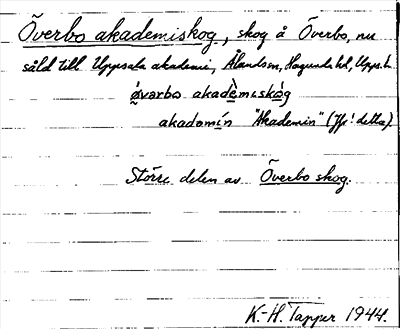 Överbo akademiskog, skog å Överbo, nu
såld till Uppsala akademi, Ålands sn, Hagunda hd, Upps. l.
ǿvarbo akadèmɩskóg
akadəmín "Akademin" (Jfr! detta).
Större delen av Överbo skog.
K.-H. Tapper 1944.